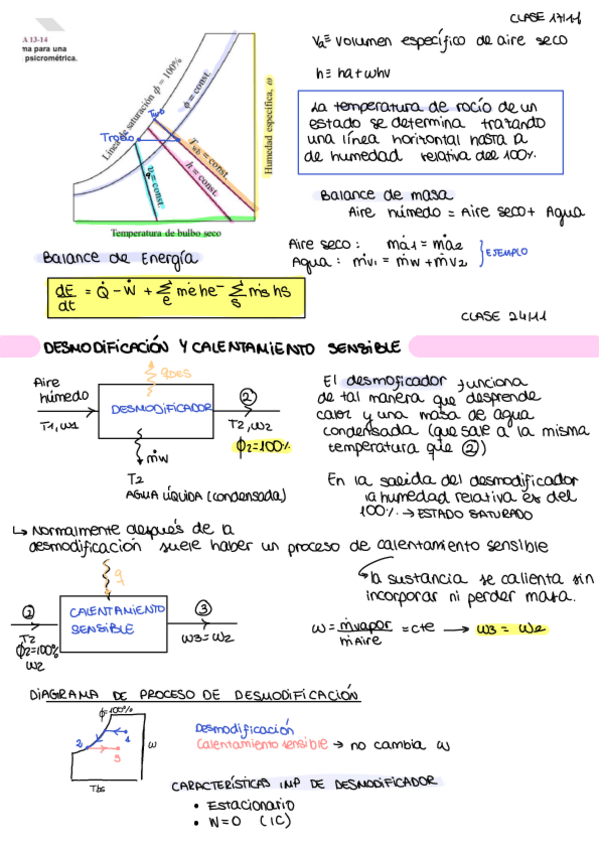 CLASE 17/11
A 13-14
ma para una
psicrométrica.
Línea de saturación ϕ = 100%
ϕ = const.
Twb
Trocío
Twb = const.
h = const.
v = const.
Humedad específica, ω
Temperatura de bulbo seco
Va ≡ Volumen específico de aire seco
h ≡ ha + whv
La temperatura de rocío de un
estado se determina trazando
una línea horizontal hasta a
de humedad relativa del 100%.
Balance de masa
Aire húmedo = Aire seco + Agua
Aire seco : ṁa1 = ṁa2
Agua : ṁv1 = ṁw + ṁv2
EJEMPLO
Balance de Energía
dE/dt = Q̇ - Ẇ + Σe ṁe he - Σs ṁs hs
CLASE 24/11
DESMODIFICACIÓN Y CALENTAMIENTO SENSIBLE
Aire
húmedo
T1, w1
qDES
DESMODIFICADOR
②
T2, w2
ϕ2=100%
ṁw
T2
AGUA LÍQUIDA (condensada)
El desmoficador funciona
de tal manera que desprende
calor y una masa de agua
condensada (que sale a la misma
temperatura que ②)
En la salida del desmodificador
la humedad relativa es del
100%. → ESTADO SATURADO
↳ Normalmente después de la
desmodificación suele haber un proceso de calentamiento sensible
la sustancia se calienta sin
incorporar ni perder masa.
q
②
T2
ϕ2=100%
w2
CALENTAMIENTO
SENSIBLE
③
w3 = w2
w = ṁvapor/ṁAire = cte → w3 = w2
DIAGRAMA DE PROCESO DE DESMODIFICACIÓN
ϕ=100%
1
2
3
w
Tbs
Desmodificación
Calentamiento sensible → no cambia w
CARACTERÍSTICAS IMP DE DESMODIFICADOR
• Estacionario
• W=0 (IC)